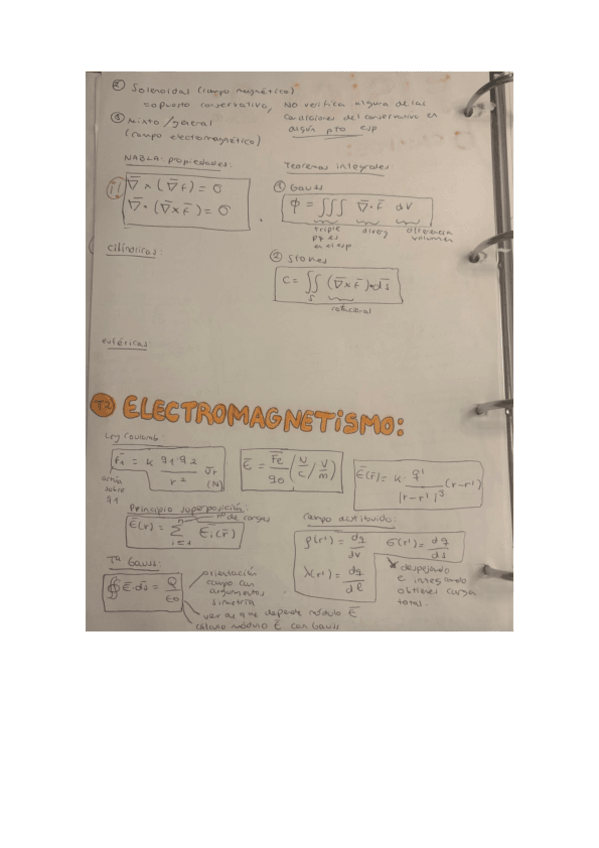 ② Solenoidal (campo magnético)
supuesto conservativo, NO verifica alguna de las
condiciones del conservativo en
algún pto esp
③ Mixto/general
(campo electromagnético)
NABLA: propiedades:
∇̄ × (∇̄f) = 0
∇̄ · (∇̄ × F̄) = 0
Teoremas integrales:
① Gauss
Φ = ∭ ∇̄ · F̄ dV
triple
pq es
en el esp
diverg
diferencial
volumen
Cilíndricas:
② Stokes
C = ∬ (∇̄ × F̄) · ds̄
S
rotacional
esféricas:
T2 ELECTROMAGNETISMO:
Ley Coulomb:
F̄₁ = K q₁ q₂ / r² ūr (N)
actúa
sobre
q1
Ē = F̄e / q0 (N/C / V/m)
Ē(r̄) = K · q' / |r-r'|³ (r-r')
Principio superposición:
nº de cargas
Ē(r) = Σ Ēi(r̄)
n
i=1
Campo distribuido:
ρ(r') = dq/dv
σ(r') = dq/ds
λ(r') = dq/dl
despejando
e integrando
obtienes carga
total.
Tª Gauss:
∯ Ē · ds̄ = Q/ε0
orientación
campo con
argumentos
simetría
ver de que depende módulo Ē
cálculo módulo Ē con Gauss